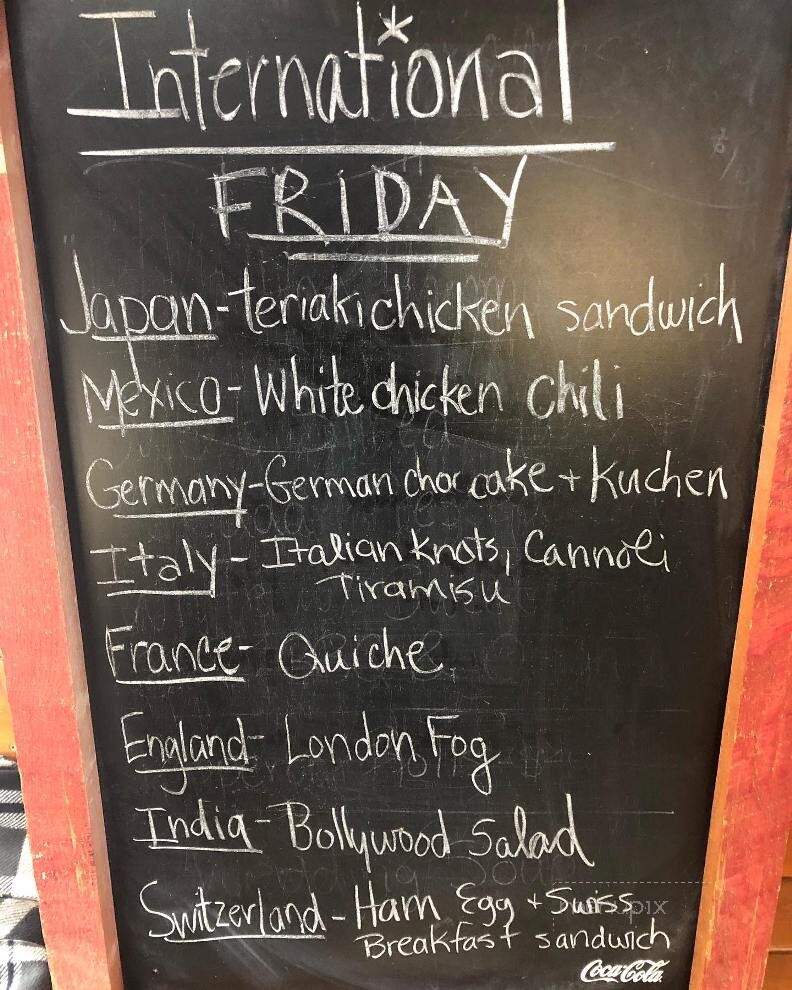 International
FRIDAY
Japan-teriaki chicken sandwich
Mexico-White chicken chili
Germany-German choc cake + Kuchen
Italy- Italian knots, Cannoli
Tiramisu
France- Quiche
England- London Fog
India- Bollywood Salad
Switzerland-Ham Egg + Swiss
Breakfast sandwich
Coca-Cola